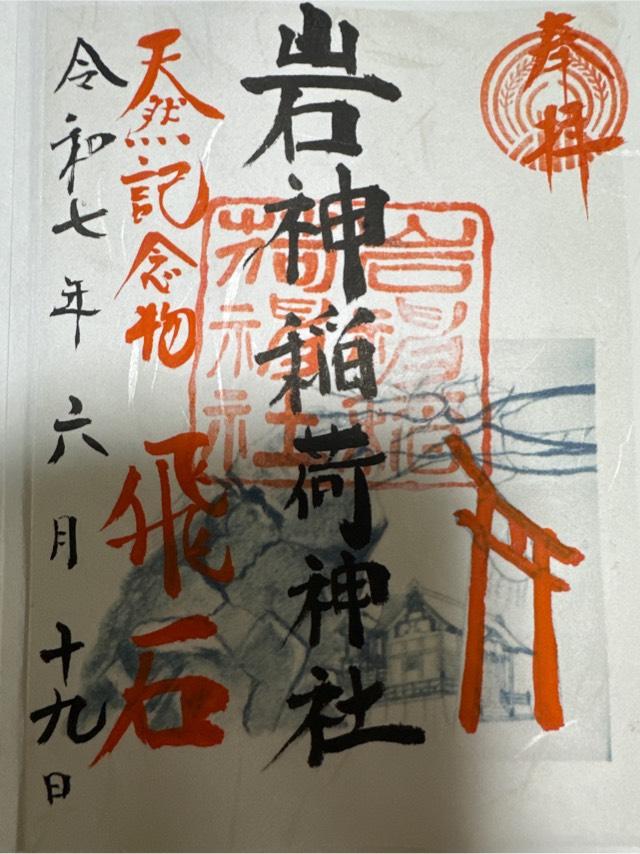 奉拝
岩神稲荷神社
天然記念物 飛石
令和七年 六月 十九日